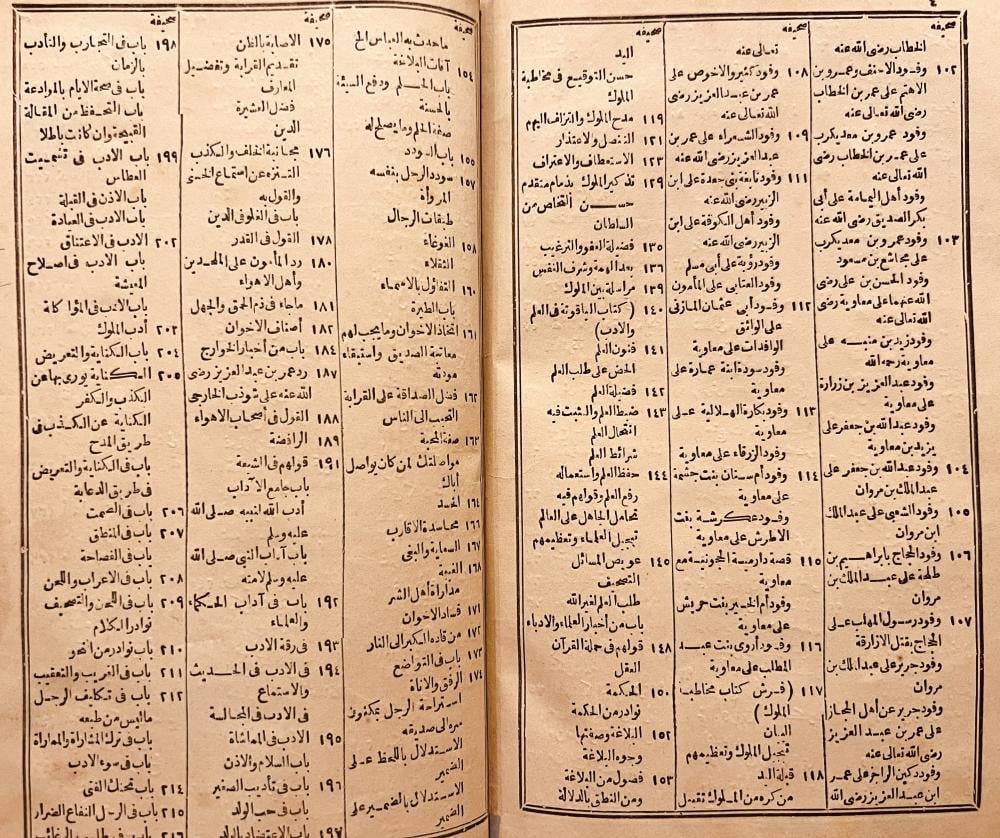 ٤
صحيفة
الخطاب رضى الله عنه
١٠٢ وفود الاحنف وعمرو بن
الاهتم على عمر بن الخطاب
رضى الله تعالى عنه
وفود عمرو بن معديكرب
على عمر بن الخطاب رضى
الله تعالى عنه
وفود أهل اليمامة على أبى
بكر الصديق رضى الله عنه
١٠٣ وفود عمرو بن معديكرب
على مجاشع بن مسعود
وفود الحسن بن على رضى
الله عنهما على معاوية رضى
الله تعالى عنه
وفود زيد بن منيه على
معاوية رحمه الله
وفود عبد العزيز بن زرارة
على معاوية
وفود عبد الله بن جعفر على
يزيد بن معاوية
١٠٤ وفود عبد الله بن جعفر على
عبد الملك بن مروان
١٠٥ وفود الشعبى على عبد الملك
ابن مروان
١٠٦ وفود الحجاج بابراهيم بن
طلحة على عبد الملك بن
مروان
١٠٧ وفود رسول المهلب على
الحجاج بقتل الازارقة
وفود جرير على عبد الملك بن
مروان
وفود جرير عن أهل الحجاز
على عمر بن عبد العزيز
رضى الله تعالى عنه
وفود دكين الراجز على عمر
ابن عبد العزيز رضى الله
صحيفة
تعالى عنه
١٠٨ وفود كثير والاحوص على
عمر بن عبد العزيز رضى
الله تعالى عنه
١٠٩ وفود الشعراء على عمر بن
عبد العزيز رضى الله عنه
١١١ وفود نابغة بنى جعدة على ابن
الزبير رضى الله عنه
وفود أهل الكوفة على ابن
الزبير رضى الله عنه
وفود رؤبة على أبى مسلم
وفود العتابى على المأمون
١١٢ وفود أبى عثمان المازنى
على الواثق
الوافدات على معاوية
وفود سودة ابنة عمارة على
معاوية
١١٣ وفود بكارة الهلالية على
معاوية
وفود الزرقاء على معاوية
١١٤ وفود أم سنان بنت جشمة
على معاوية
وفود عكرشة بنت
الاطرش على معاوية
١١٥ قصة دارمية الحجونية مع
معاوية
وفود أم الخير بنت حريش
على معاوية
١١٦ وفود أروى بنت عبد
المطلب على معاوية
١١٧ (فرش كتاب مخاطبة
الملوك)
البيان
تبجيل الملوك وتعظيمهم
١١٨ قبلة اليد
من كره من الملوك تقبيل
صحيفة
اليد
حسن التوقيع فى مخاطبة
الملوك
١١٩ مدح الملوك والتزلف اليهم
١٢١ التنصل والاعتذار
١٢٣ الاستعطاف والاعتراف
١٢٩ تذكير الملوك بذمام متقدم
حسن التخلص من
السلطان
١٣٥ فضيلة العفو والترغيب
١٣٦ بعد الهمة وشرف النفس
١٣٩ مراسلة بين الملوك
١٤٠ (كتاب الياقوتة فى العلم
والادب)
١٤١ فنون العلم
الحض على طلب العلم
١٤٢ فضيلة العلم
١٤٣ ضبط العلم والتثبت فيه
انتحال العلم
شرائط العلم
١٤٤ حفظ العلم واستعماله
رفع العلم وقولهم فيه
تحامل الجاهل على العالم
تبجيل العلماء وتعظيمهم
١٤٥ عويص المسائل
التصحيف
طلب العلم لغير الله
باب من أخبار العلماء والادباء
١٤٨ قولهم فى حملة القرآن
العقل
١٥٠ الحكمة
نوادر من الحكمة
١٥٢ البلاغة وصفتها
وجوه البلاغة
١٥٣ فصول من البلاغة
ومن النطق بالدلالة
صحيفة
ما حدث به العباس الخ
١٥٤ آفات البلاغة
باب الحلم ودفع السيئة
بالحسنة
صفة الحلم وما يصلح له
١٥٥ باب السودد
١٥٧ سودد الرجل بنفسه
المروأة
طبقات الرجال
١٥٨ الغوغاء
الثقلاء
١٦٠ التفاؤل بالاسماء
باب الطيرة
١٦١ اتخاذ الاخوان وما يجب لهم
معاتبة الصديق واستبقاء
مودته
١٦٢ فضل الصداقة على القرابة
التحبب الى الناس
١٦٣ صفة المحبة
مواصلتك لمن كان يواصل
أباك
١٦٤ الحسد
١٦٦ محاسدة الاقارب
١٦٧ السعاية والبغى
١٦٨ الغيبة
مداراة أهل الشر
١٧١ فساد الاخوان
١٧٢ من قاده الكبر الى النار
١٧٣ باب فى التواضع
١٧٤ الرفق والاناة
استراحة الرجل بمكنون
سره الى صديقه
الاستدلال باللحظ على
الضمير
الاستدلال بالضمير على
الضمير
صحيفة
١٧٥ الاصابة بالظن
تقديم القرابة وتفضيل
المعارف
فضل العشيرة
الدين
١٧٦ مجانبة الخلف والكذب
التنزه عن استماع الخنى
والقول به
باب فى الغلو فى الدين
١٧٨ القول فى القدر
١٨٠ رد المأمون على الملحدين
وأهل الاهواء
١٨١ ماجاء فى ذم الحمق والجهل
١٨٢ أصناف الاخوان
١٨٤ باب من أخبار الخوارج
١٨٧ رد عمر بن عبد العزيز رضى
الله عنه على شوذب الخارجى
١٨٨ القول فى أصحاب الاهواء
١٨٩ الرافضة
١٩١ قولهم فى الشيعة
باب جامع الآداب
أدب الله لنبيه صلى الله
عليه وسلم
باب آداب النبى صلى الله
عليه وسلم لامته
١٩٢ باب فى آداب الحكماء
والعلماء
١٩٣ فى رقة الادب
١٩٤ فى الادب فى الحديث
والاستماع
فى الادب فى المجالسة
١٩٥ الادب فى المماشاة
باب السلام والاذن
١٩٦ باب فى تأديب الصغير
باب فى حب الولد
١٩٧ باب الاعتضاد بالولد
صحيفة
١٩٨ باب فى التجارب والتأدب
بالزمان
باب فى صحة الايام بالموادعة
باب التحفظ من المقالة
القبيحة وان كانت باطلا
١٩٩ باب الادب فى تشميت
العطاس
باب الاذن فى القبلة
باب الادب فى العيادة
٢٠٢ الادب فى الاعتناق
باب الادب فى اصلاح
المعيشة
باب الادب فى المؤاكلة
٢٠٣ أدب الملوك
٢٠٤ باب الكناية والتعريض
٢٠٥ الكناية يورى بها عن
الكذب والكفر
الكناية عن الكذب فى
طريق المدح
باب فى الكناية والتعريض
فى طريق الدعابة
٢٠٦ باب فى الصمت
٢٠٧ باب فى المنطق
باب فى الفصاحة
٢٠٨ باب فى الاعراب واللحن
٢٠٩ باب فى اللحن والتصحيف
نوادر الكلام
٢١٠ باب نوادر من النحو
٢١١ باب فى الغريب والتقعيب
٢١٢ باب فى تكليف الرجل
ماليس من طبعه
باب فى ترك المشاراة والمماراة
باب فى سوء الادب
٢١٤ باب تحنك الفتى
٢١٥ باب فى الرجل النفاع الضرار
٢١٦ باب فى طلب الرغائب